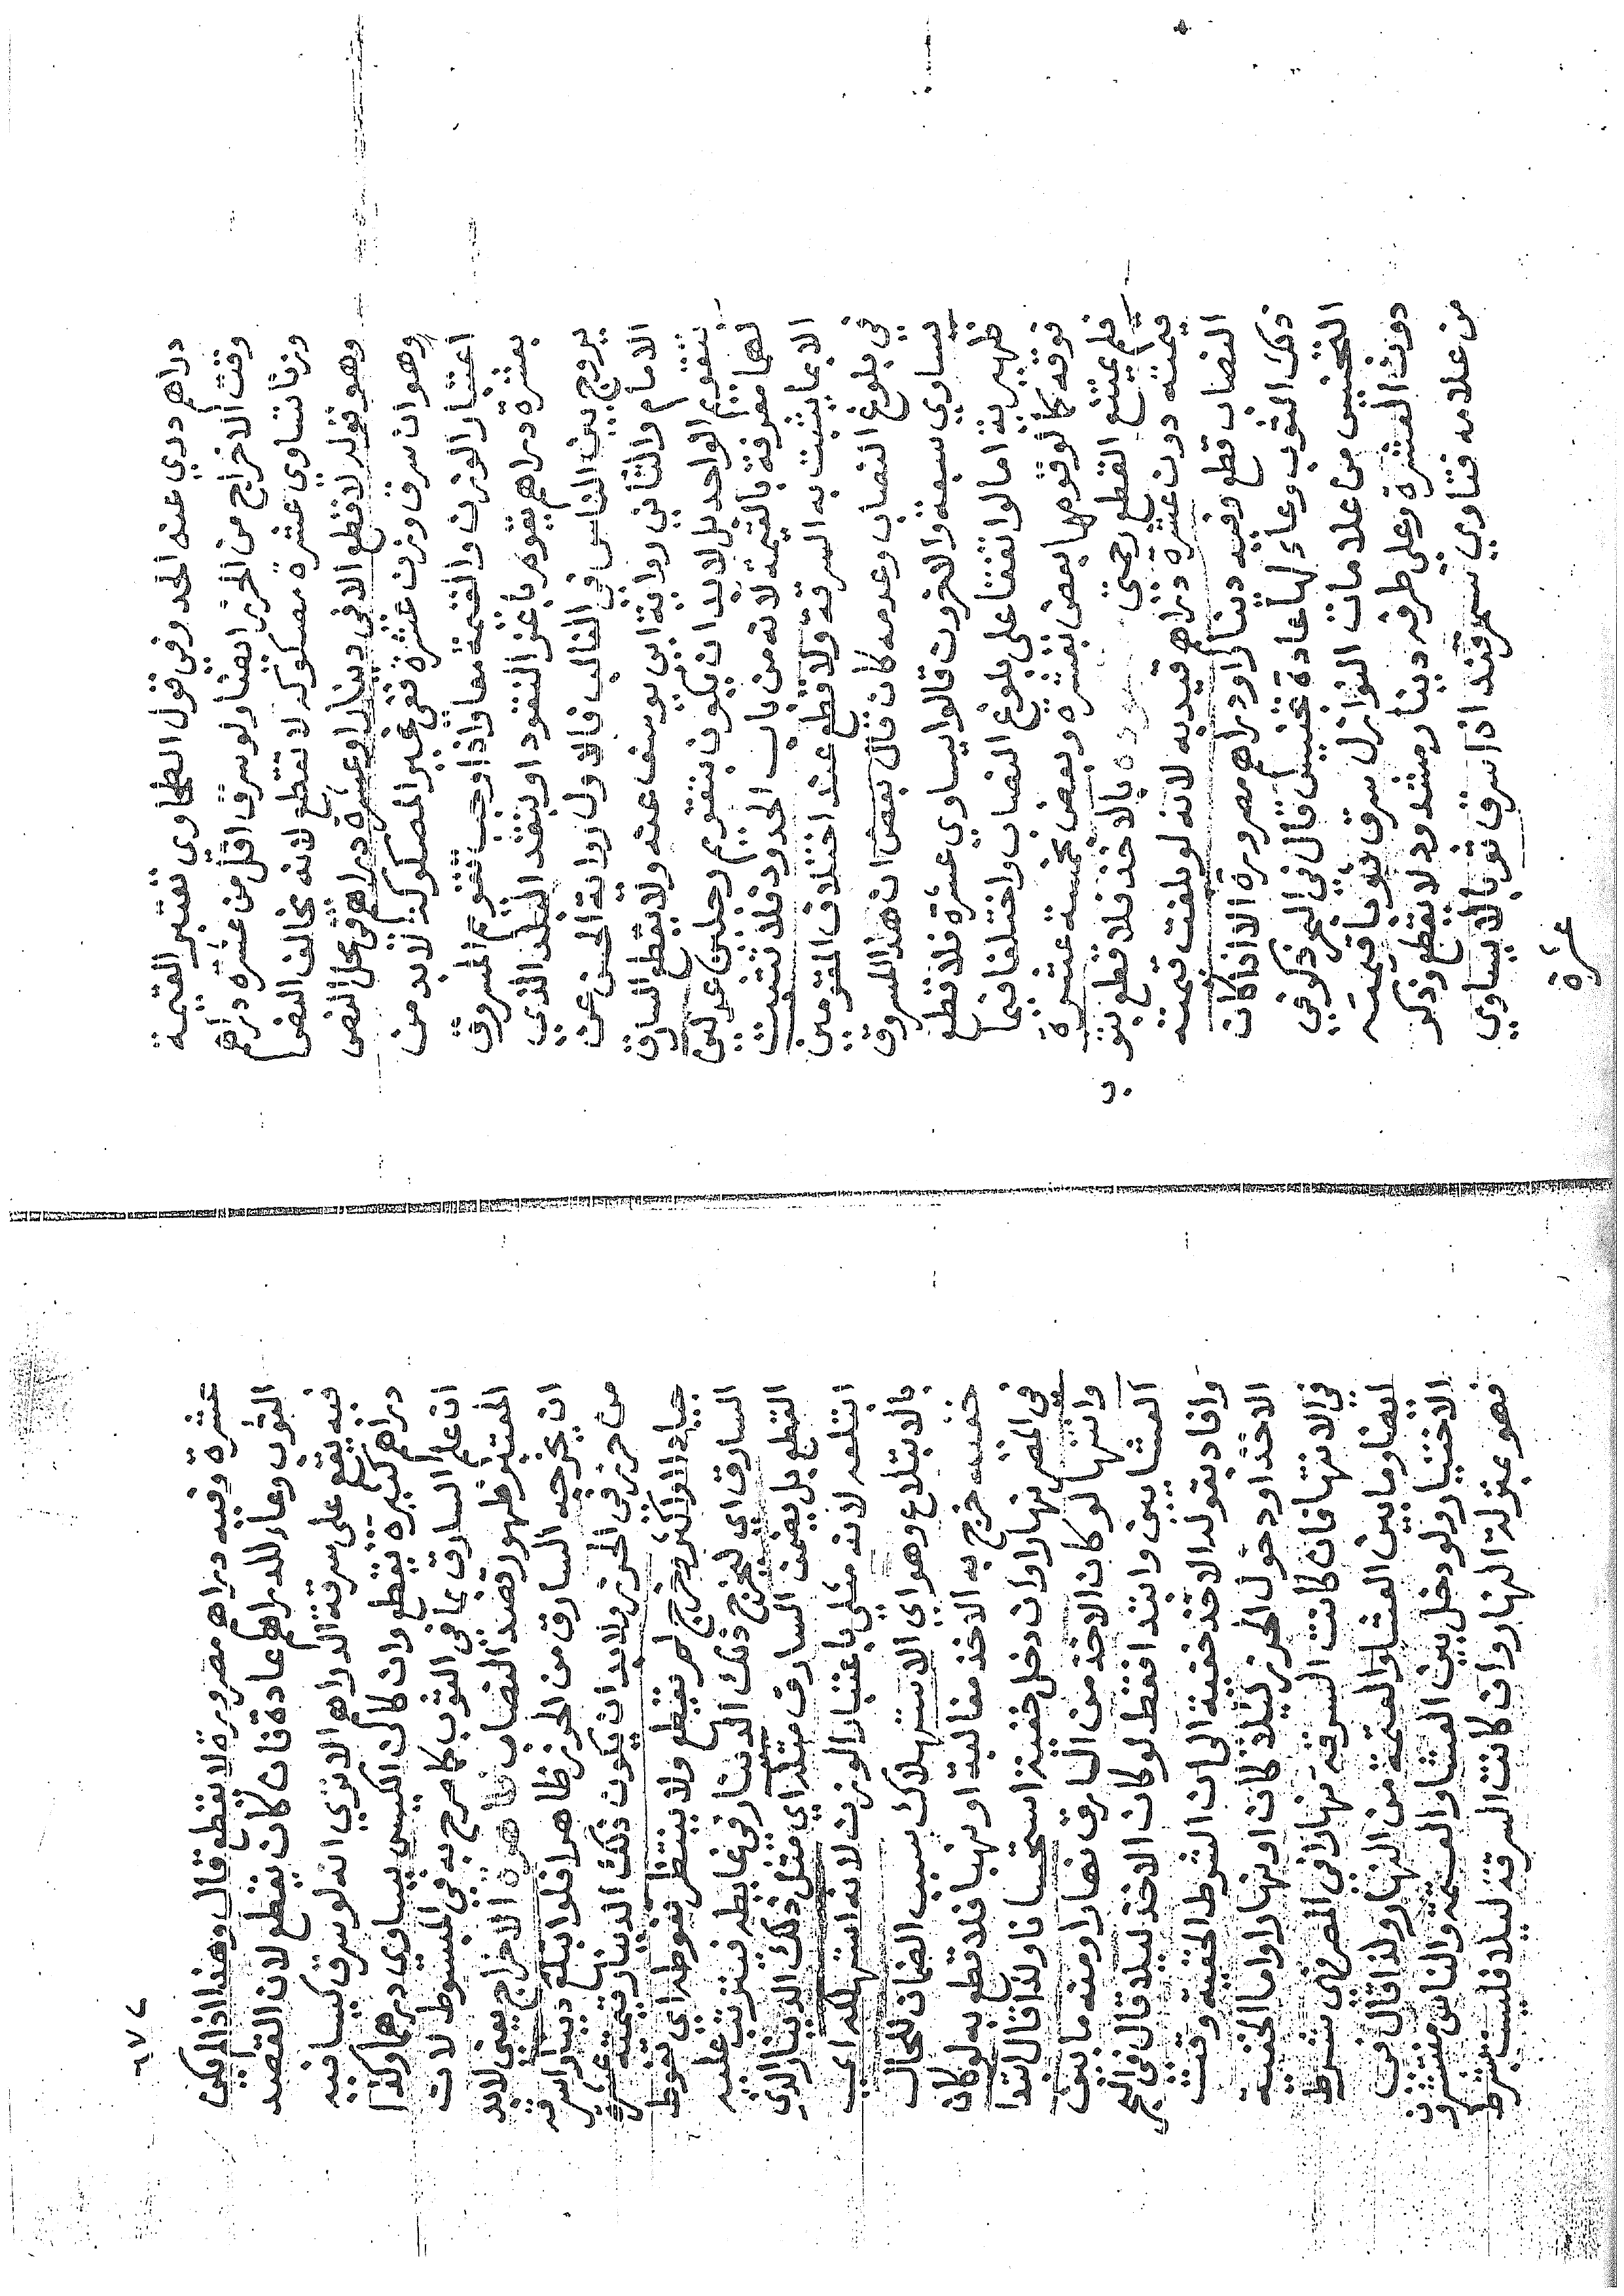 دراهم دري عنه الحد وفي قول الطحاوي تعتبر القيمة
وقت الاخراج من الحرز ايضا ولو سرق اقل من عشرة دراهم
وزنا تساوي عشرة مصكوكة لا تقطع لانه يخالف النص
وهو قوله لا قطع الا في دينار او عشرة دراهم في محل النص
وهو ان سرق وزن عشرة ففي غير المصكوكة لا بد من
اعتبار الوزن والقيمة معا واذا وجب تقويم المسروق
بعشرة دراهم يقوم باعز النقود او بنقد البلد الذي
يروج بين الناس في الغالب فالاول رواية الحسن عن
الامام والثاني رواية ابي يوسف عنه ولا يقطع السارق
بتقويم الواحد بل لا بد ان يكون بتقويم رجلين عدلين
لهما معرفة بالقيمة لانه من باب الحدود فلا تثبت
الا بما يثبت به السرقة ولا قطع عند اختلاف المقومين
في بلوغ النصاب وعدمه كان قال بعض ان هذا المسروق
يساوي سبعة والاخرون قالوا يساوي عشرة فلا قطع
ظهيرية اما لو اتفقا على بلوغ النصاب واختلفا فيما
فوقه كما لو قومها بعض بعشرة وبعض بخمسة عشرة
فلم يمتنع القطع رحمتي بالاخذ فلا قطع بثو
قيمته دون عشرة دراهم قيد به لانه لو بلغت قيمته
النصاب قطع وفيه دينار او دراهم مصرورة الا اذا كان
ذلك الثوب وعاء لها عادة تجنيس قال في البحر ذكر في
التجنيس من علامات النوازل سرق ثوبا قيمته
دون العشرة وعلى طرفه دينار مشدود لا يقطع وذكر
من علامه فتاوي سمرقند اذا سرق ثوبا لا يساوي
عشرة
عشرة وفيه دراهم مصرورة لا يقطع قال وهذا اذا لم يكن
الثوب وعاء للدراهم عادة فان كان يقطع لان القصد
فيه يقع على سرقة الدراهم الا تري انه لو سرق كيسا فيه
دراهم كثيرة يقطع وان كان الكيس يساوي درهما وكذا
ان علم السارق بما في الثوب كما صرح به في المبسوط لان
المعتبر ظهور قصد النصاب ظاهرة الاخراج يعني لابد
ان يخرجه السارق من الحرز ظاهرا فلو ابتلع دينارا سرقه
من حرز في الحرز ولابد ان يكون ذلك الدينار قيمته عشرة
جياد او اكثر وخرج لم يقطع ولا ينتظر تغوطه اي تغوط
السارق اي ليخرج ذلك الدينار في غايطه فيترتب عليه
القطع بل يضمن السارق مثله اي مثل ذلك الدينار الذي
ابتلعه لانه مثلي باعتبار الوزن لانه استهلكه اي
بالابتلاع وهو اي الاستهلاك سبب الضمان للحال
خفيه خرج به الاخذ مغالبة او نهبا فلا قطع به لو كان
في المصر نهارا وان دخل خفية استحسانا ولذا قال ابتدا
وانتها لو كان الاخذ من السارق نهارا ومنه ما بين
العشا يين وابتدا فقط لو كان الاخذ ليلا قال في البحر
وافاد بقوله الاخذ خفية الي ان الشرط الخفية وقت
الاخذ او دخول الحرز ليلا كان او نهارا واما الخفية
في الانتها فان كانت السرقة نهارا في المصر فهي شرط
ايضا وما بين العشا والعتمة من النهار ولذا قال في
الاختيار ولو دخل بين العشا والعتمة والناس منتشرون
فهو بمنزلة النهار وان كانت السرقة ليلا فليست بشرط